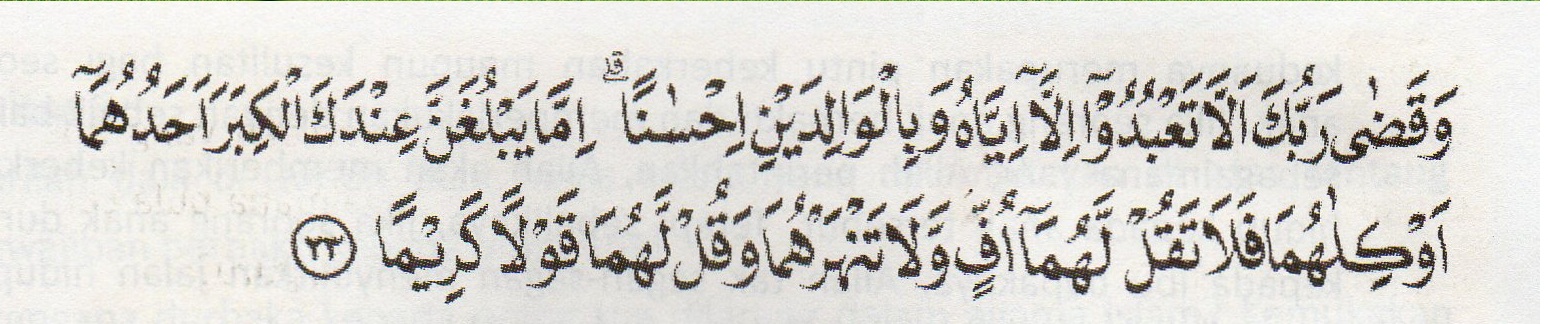 وَقَضٰى رَبُّكَ اَلَّا تَعْبُدُوْٓا اِلَّآ اِيَّاهُ وَبِالْوَالِدَيْنِ اِحْسٰنًاۗ اِمَّا يَبْلُغَنَّ عِنْدَكَ الْكِبَرَ اَحَدُهُمَآ
اَوْ كِلٰهُمَا فَلَا تَقُلْ لَّهُمَآ اُفٍّ وَّلَا تَنْهَرْهُمَا وَقُلْ لَّهُمَا قَوْلًا كَرِيْمًا ٢٣